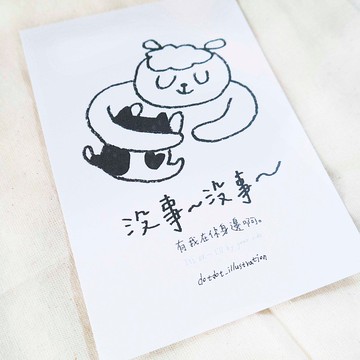 没事~没事~
有我在你身邊啊。
dotdot_illustration